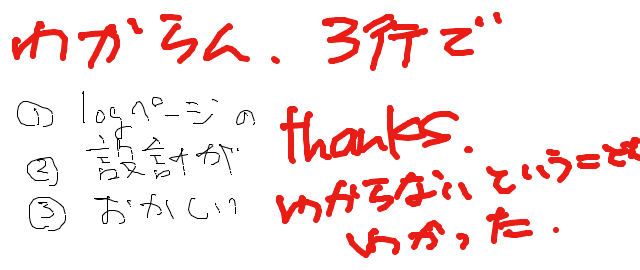 わがらん. 3行で
① logページの
② 設計が
③ おかしい
thanks.
わからないということが
わかった.